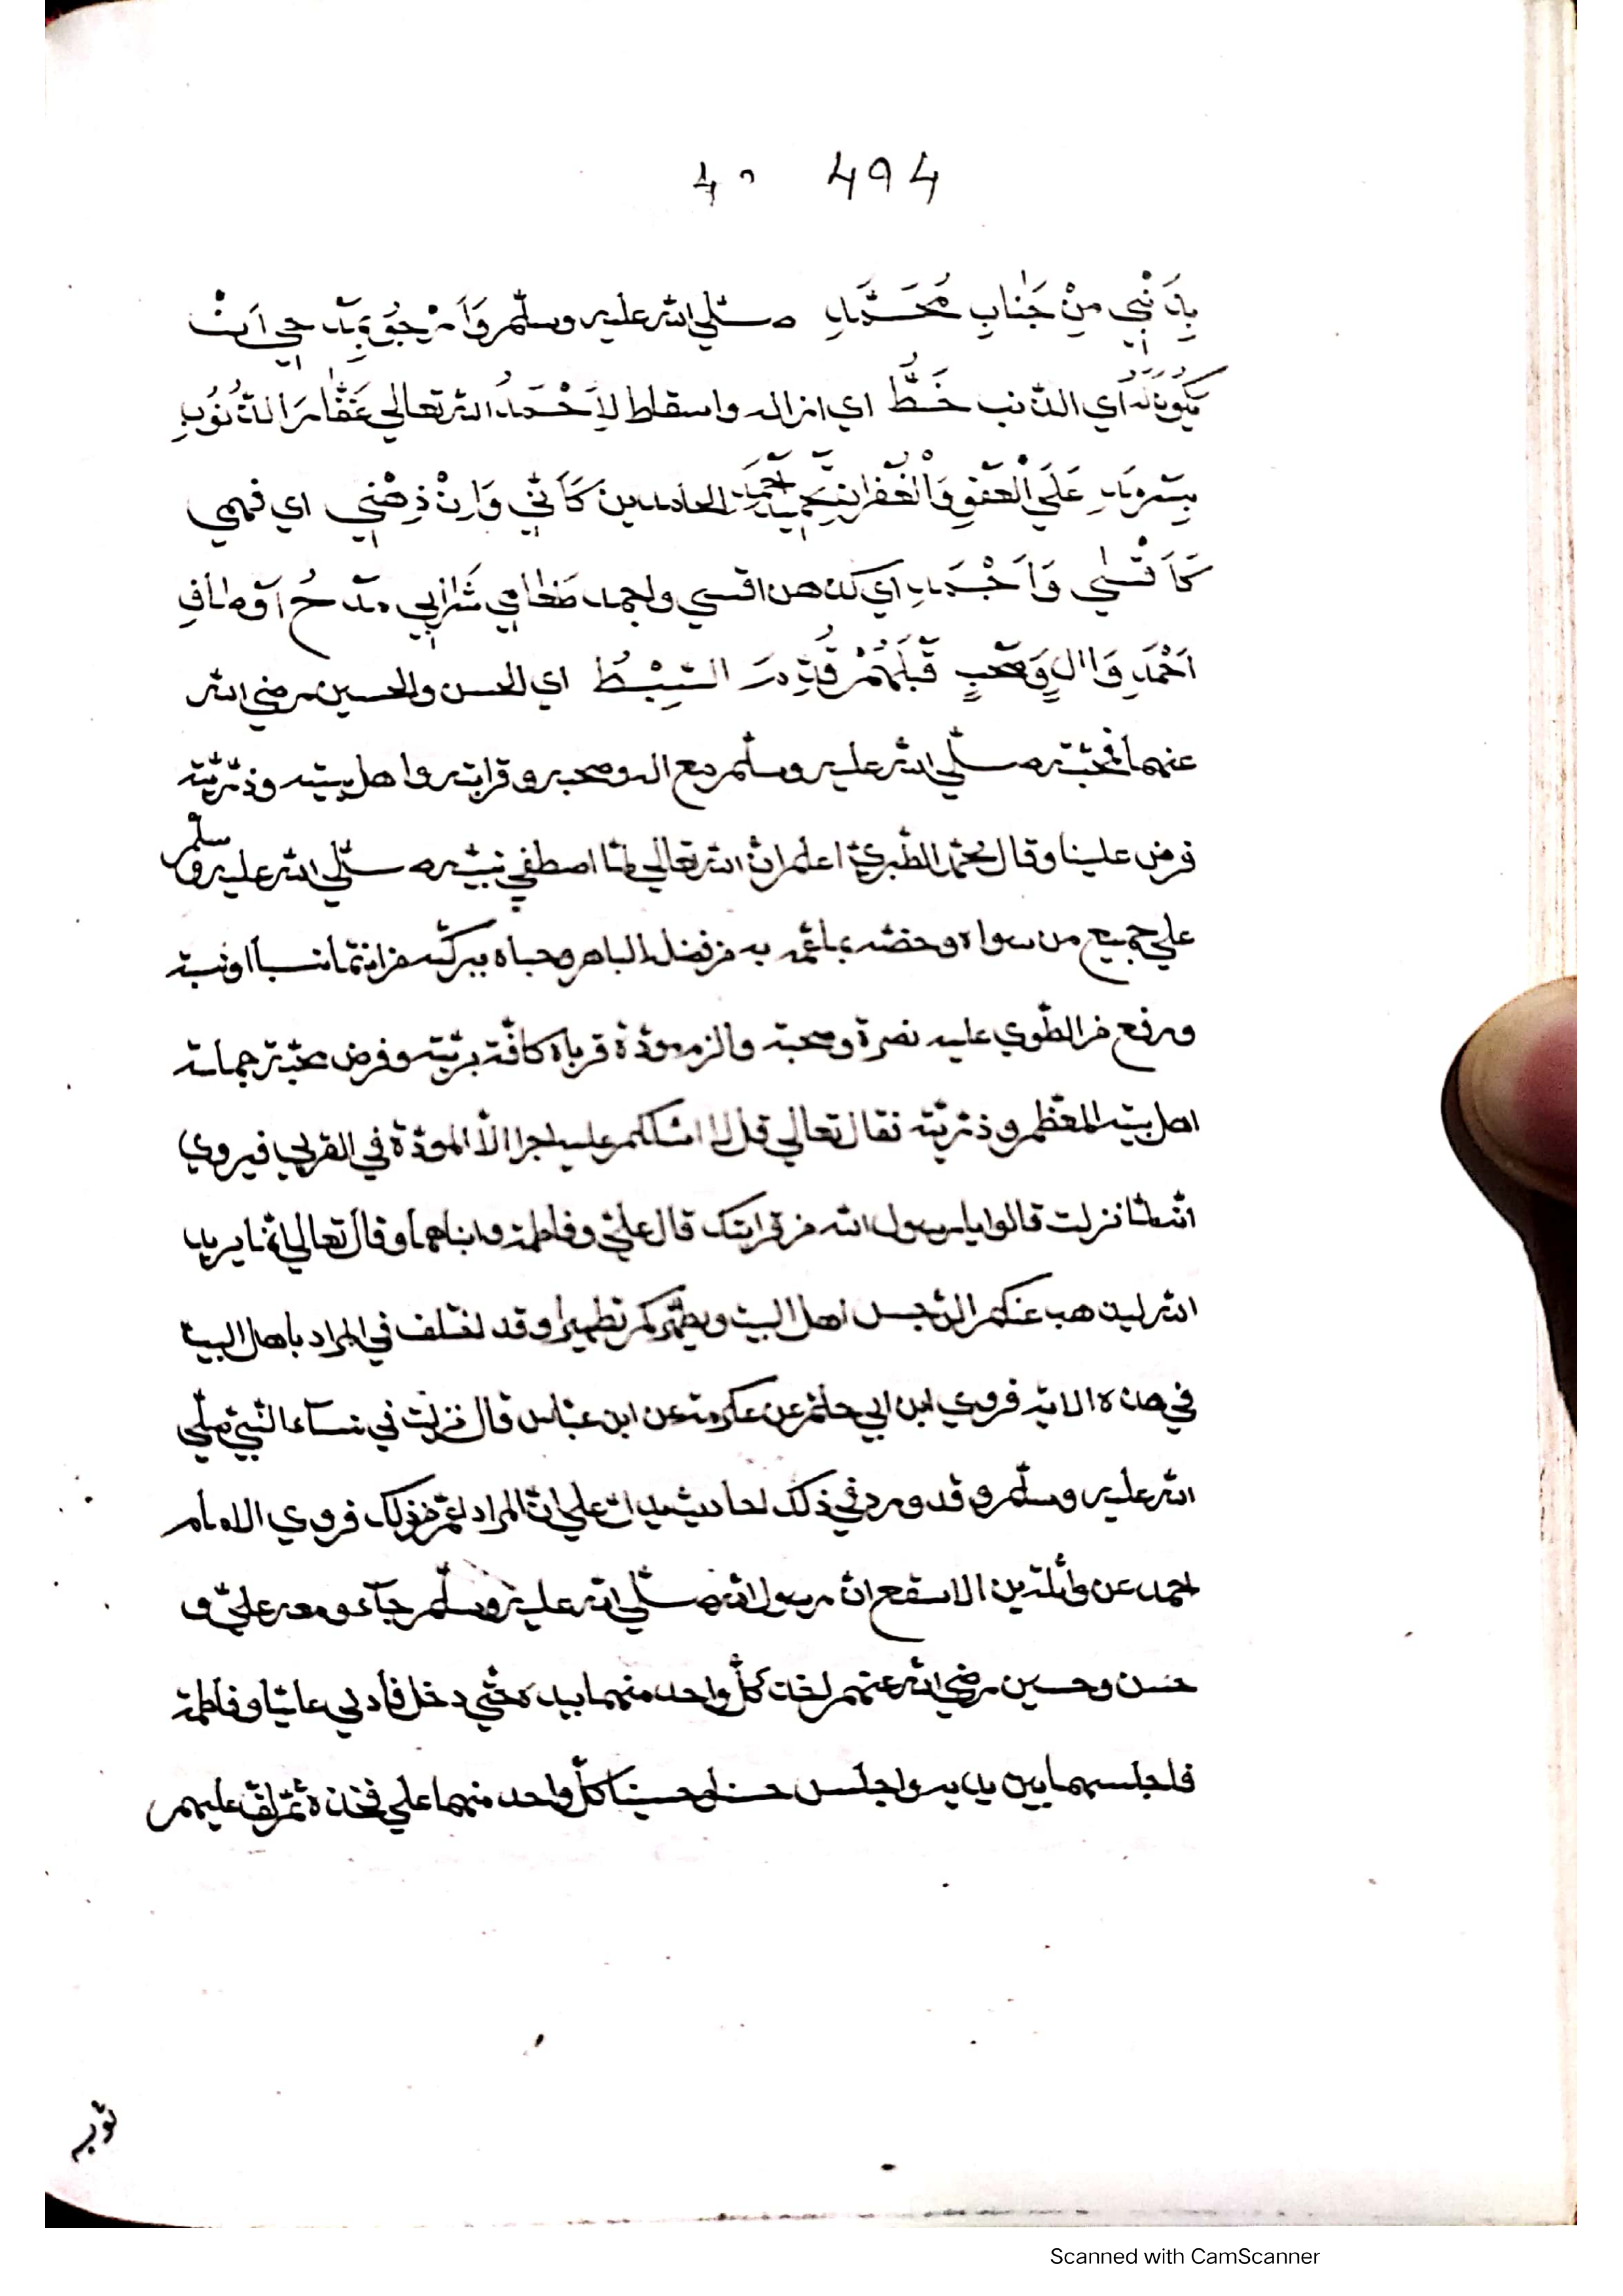 494 40
بِذَنْبِي مِنْ جَنَابِ مُحَمَّدِ صلّي الله عليه وسلّم وَاَرْجُو بِمَدْحِي اَنْ
يَكُونَ لَهُ اي الذنب حَطُّ اي ازاله واسقاط لِاَحْمَدُ الله تعالي غَفَّارَ الذُّنُوبِ
بِسَرْمَدِ عَلَي الْعَفْوِ وَالْغُفْرَانِ الحامدين كَاَنِّي وَاِنْ ذِهْنِي اي فهمي
كَاَقْسٰي وَاَجْمَدِ اي كان ذهن اقسي واجمد طَعَامِي شَرَابِي مَدْحُ اَوْصَافِ
اَحْمَدِ وَاٰلٍ وَصَحْبٍ قَبْلَهُمْ السِّبْطُ اي الحسن والحسين رضي الله
عنهما فمحبّته صلّي الله عليه وسلّم مع اله وصحبه وقرابته واهل بيته وذرّيّته
فرض علينا وقال محبّ الطّبريّ اعلم انّ الله تعالي لمّا اصطفي نبيّه صلّي الله عليه وسلّم
علي جميع من سواه وخصّه بما عمّه به من فضله الباهر وحباه ببركته من انتما نسبا او نسبة
ورفع من انطوي عليه نصرة وصحبة والزم مودّة قرباه كافّة بريّته وفرض محبّة جملة
اهل بيته المعظّم وذرّيّته فقال تعالي قل لا اسئلكم عليه اجرا الاّ المودّة في القربي فيروي
انّها لمّا نزلت قالوا يا رسول الله من قرابتك قال عليّ وفاطمة وابناهما وقال تعالي انّما يريد
الله ليذهب عنكم الرّجس اهل البيت ويطهّركم تطهيرا وقد اختلف في المراد باهل البيت
في هذه الاية فروي ابن ابي حاتم عن عكرمة عن ابن عبّاس قال نزلت في نسآء النّبيّ صلّي
الله عليه وسلّم وقد ورد في ذلك احاديث يدلّ علي انّ المراد اعمّ من ذلك فروي الامام
احمد عن واثلة بن الاسقع انّ رسول الله صلّي الله عليه وسلّم جآء ومعه عليّ و
حسن وحسين رضي الله عنهم اخذ كلّ واحد منهما بيده حتّي دخل فادني عليّا وفاطمة
فاجلسهما بين يديه واجلس حسنا وحسينا كلّ واحد منهما علي فخذه ثمّ لفّ عليهم
ثوبه
Scanned with CamScanner